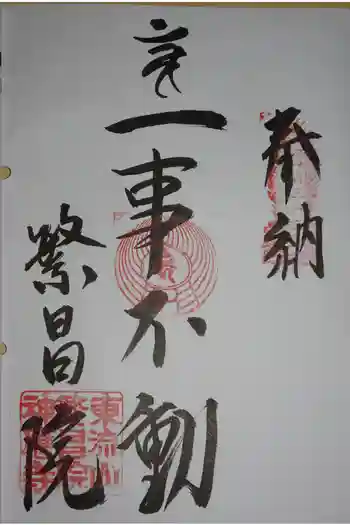 奉納
一事不動
繁昌院
東流山
繁昌院